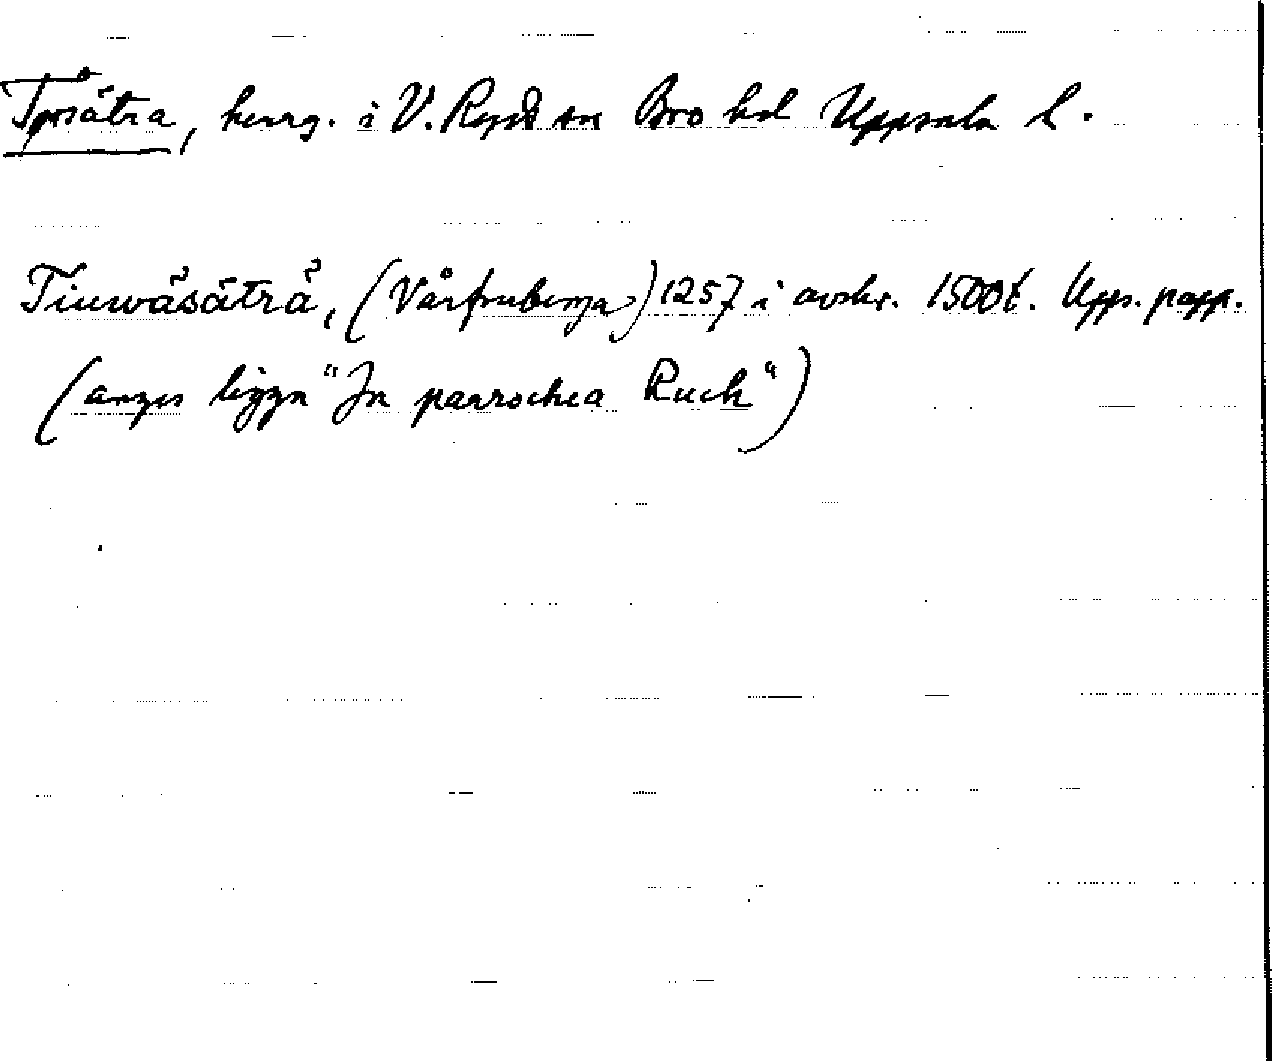 Tjusätra, herrg. i V. Ryds sn Bro hd Uppsala l.
Tiuwäsäträ, (Vårfruberga) 1257 i avskr. 1500t. Upps. papp.
(anges ligga "In parrochia Ruck")